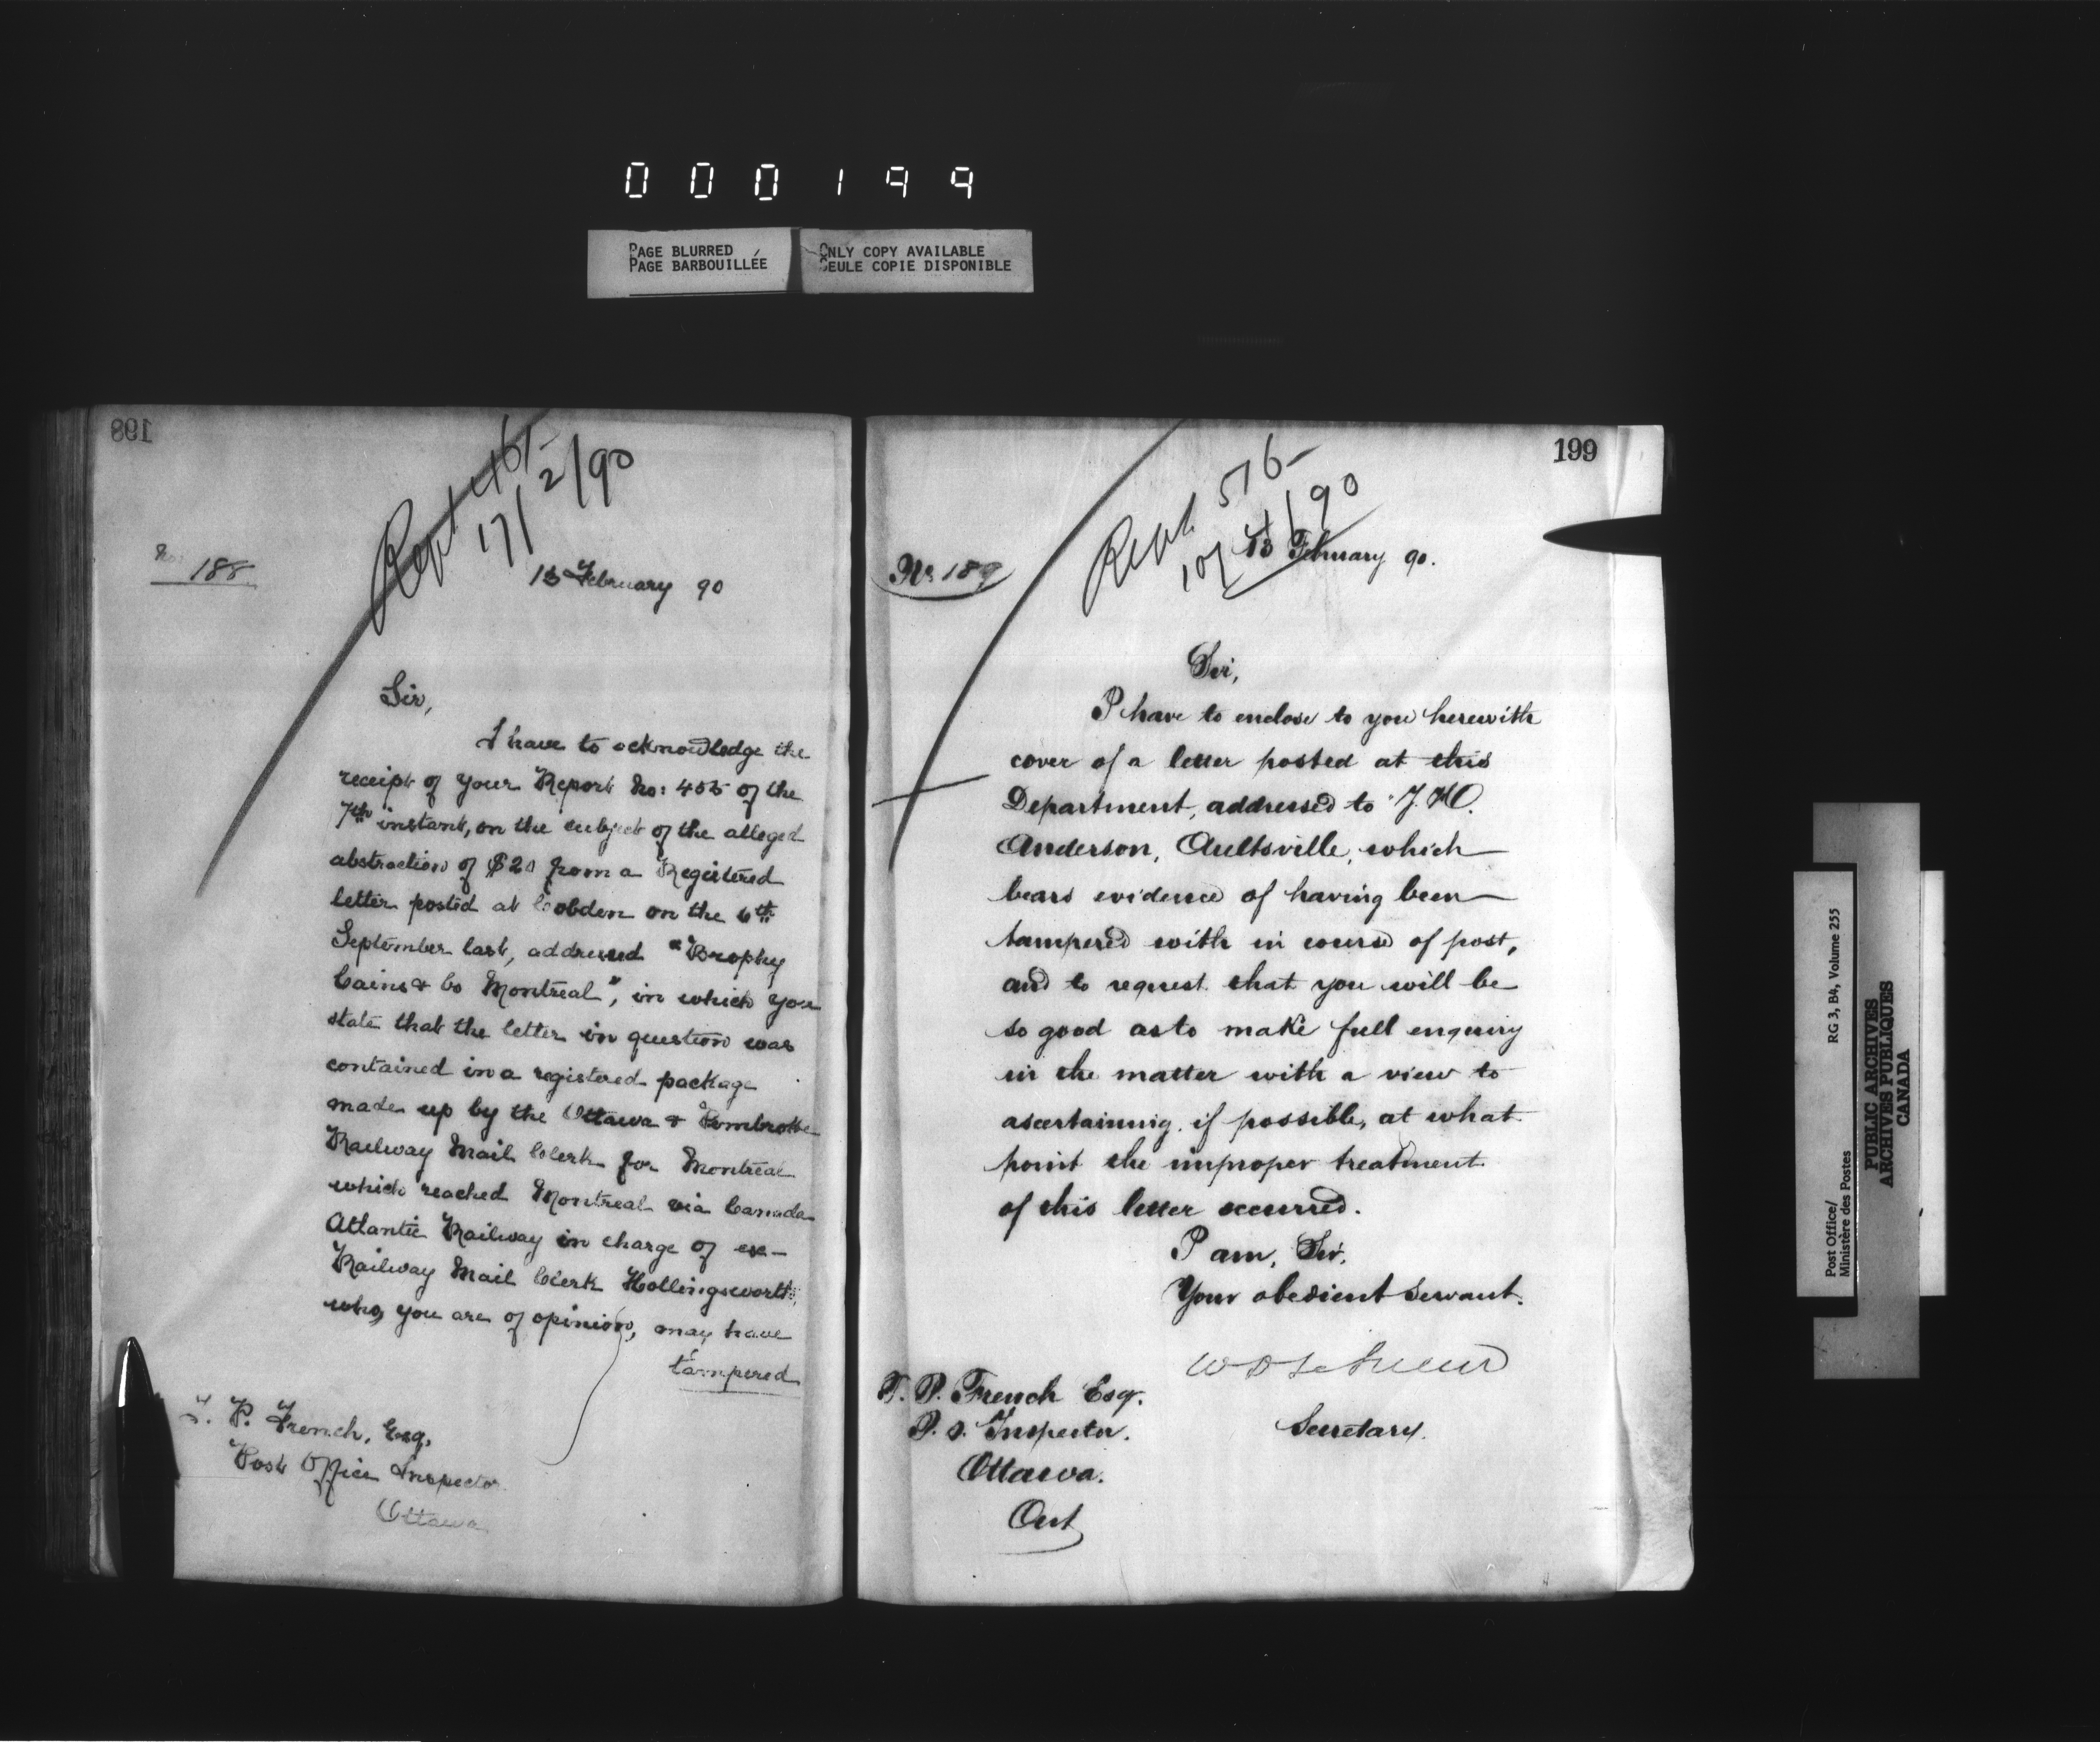 000199
PAGE BLURRED
PAGE BARBOUILLÉE
ONLY COPY AVAILABLE
SEULE COPIE DISPONIBLE
198
Rept 465
17/2/90
No: 188
13 February 90
Sir,
I have to acknowledge the
receipt of your Report No: 455 of the
7th instant, on the subject of the alleged
abstraction of $20 from a Registered
letter posted at Cobden on the 6th
September last, addressed "Brophy
Cains & Co Montreal", in which you
state that the letter in question was
contained in a registered package
made up by the Ottawa & Pembroke
Railway Mail Clerk for Montreal
which reached Montreal via Canada
Atlantic Railway in charge of ex-
Railway Mail Clerk Hollingsworth,
who, you are of opinion, may have
tampered
T. P. French, Esq,
Post Office Inspector
Ottawa
199
Rept 576
10/4/90
No 189
13 February 90.
Sir,
I have to enclose to you herewith
cover of a letter posted at this
Department, addressed to J. H.
Anderson, Aultsville, which
bears evidence of having been
tampered with in course of post,
and to request that you will be
so good as to make full enquiry
in the matter with a view to
ascertaining, if possible, at what
point the improper treatment
of this letter occurred.
I am, Sir,
Your obedient Servant.
W D LeSueur
Secretary.
T. P. French Esq.
P. O. Inspector.
Ottawa.
Ont
Post Office/
Ministère des Postes
RG 3, B4, Volume 255
PUBLIC ARCHIVES
ARCHIVES PUBLIQUES
CANADA